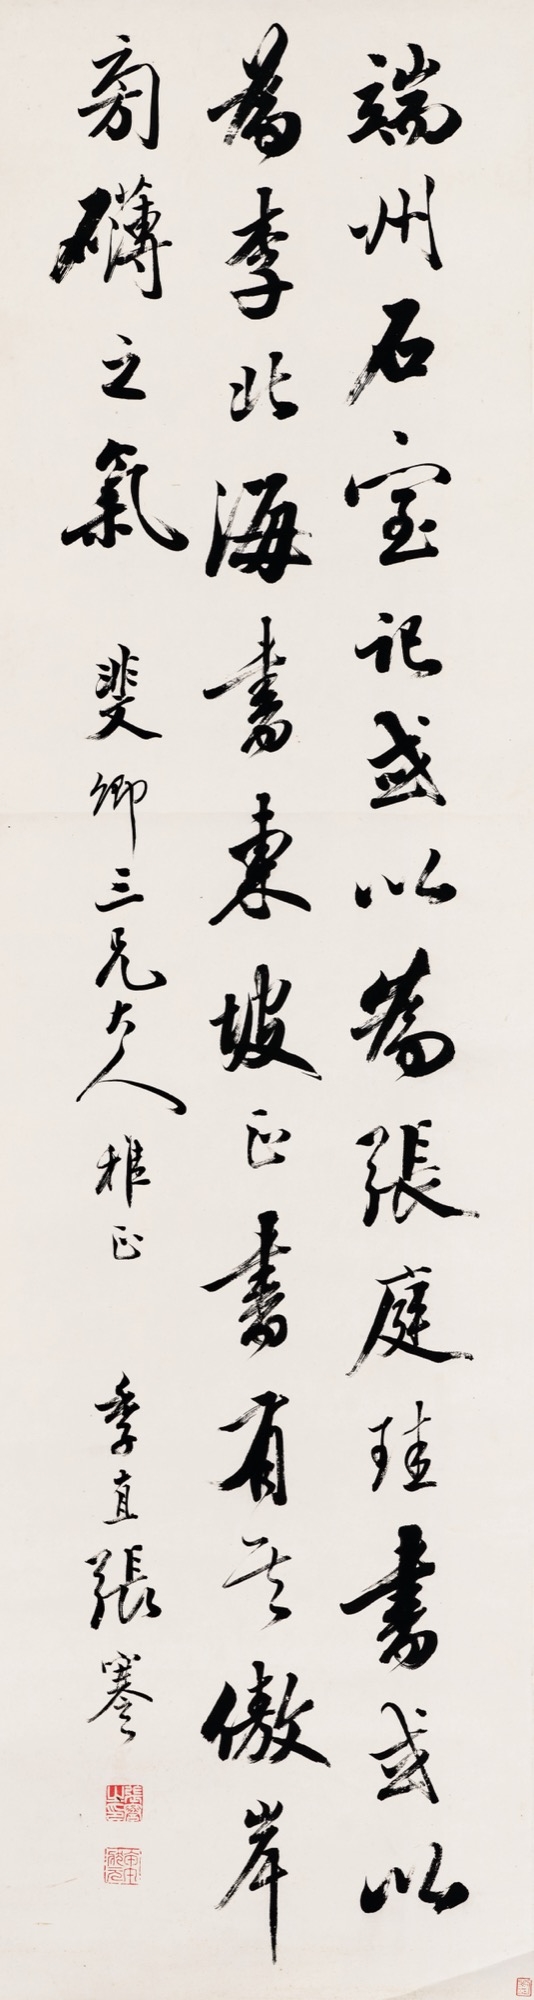 端州石室記或以為張庭珪書或以
為李北海書東坡正書有其傲岸
旁礴之氣 斐卿三兄大人雅正 季直張謇
張謇之印